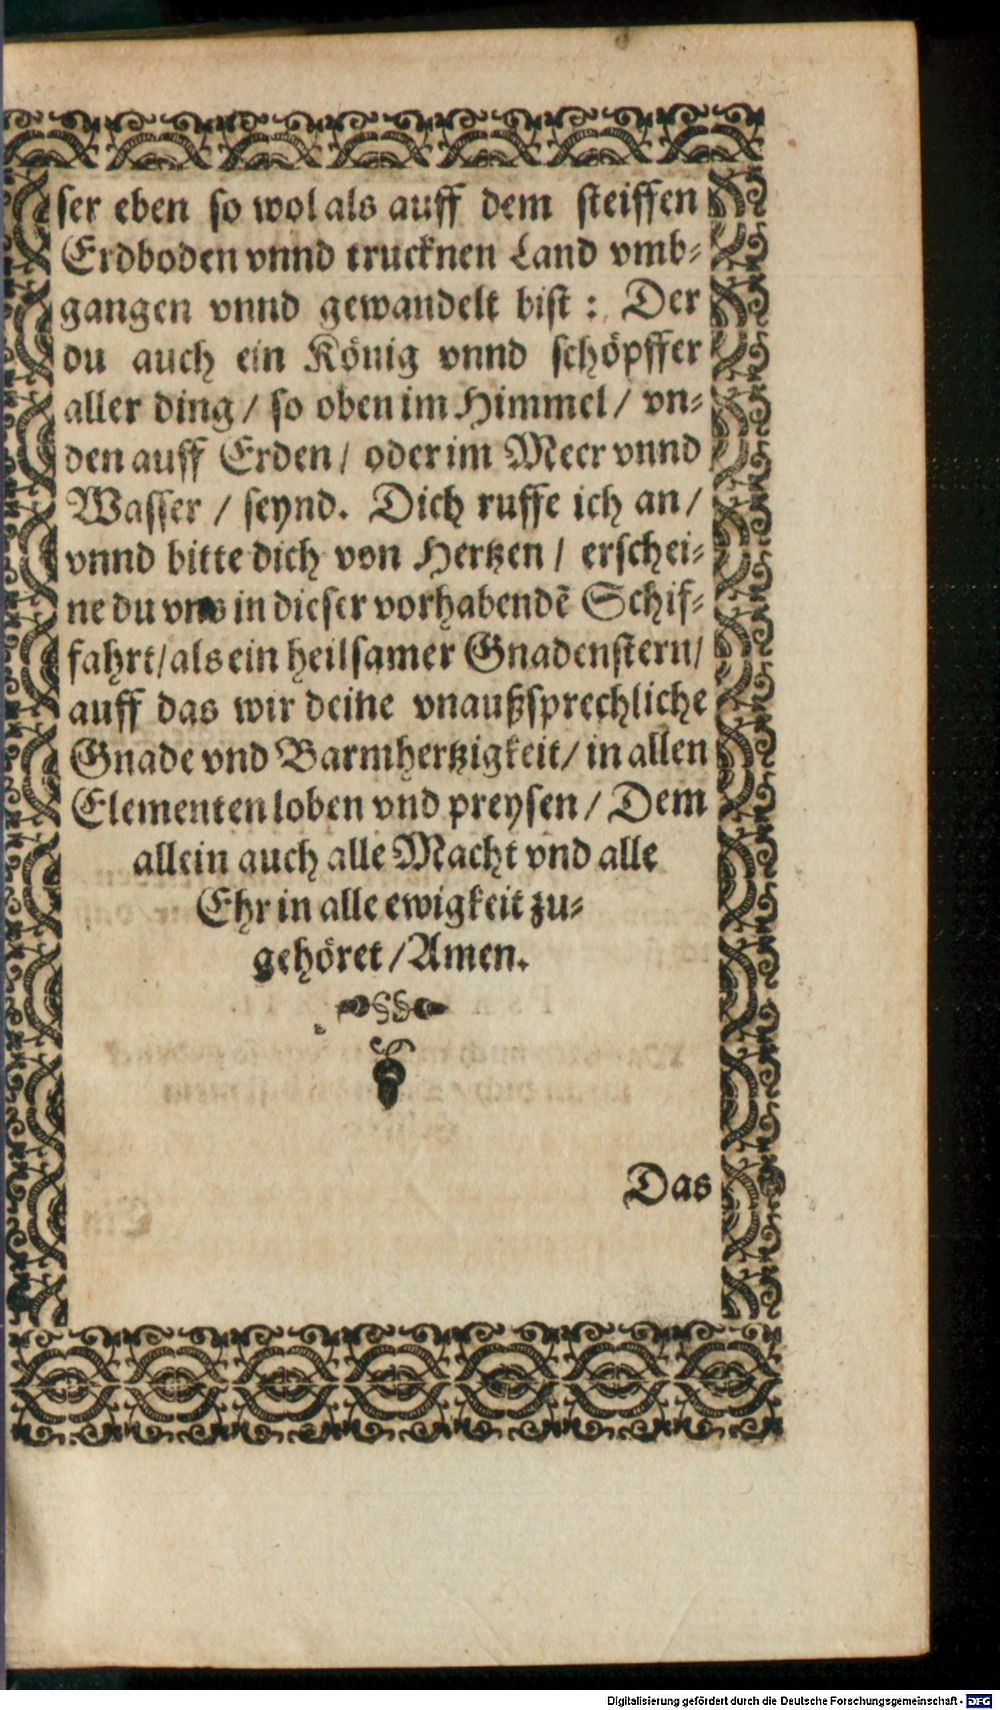 ser eben so wol als auff dem steiffen
Erdboden vnnd trucknen Land vmb-
gangen vnnd gewandelt bist: Der
du auch ein König vnnd schöpffer
aller ding / so oben im Himmel / vn-
den auff Erden / oder im Meer vnnd
Wasser / seynd. Dich ruffe ich an /
vnnd bitte dich von Hertzen / erschei-
ne du vns in dieser vorhabendẽ Schif-
fahrt / als ein heilsamer Gnadenstern /
auff das wir deine vnaußsprechliche
Gnade vnd Barmhertzigkeit / in allen
Elementen loben vnd preysen / Dem
allein auch alle Macht vnd alle
Ehr in alle ewigkeit zu-
gehöret / Amen.
Das
Digitalisierung gefördert durch die Deutsche Forschungsgemeinschaft - DFG